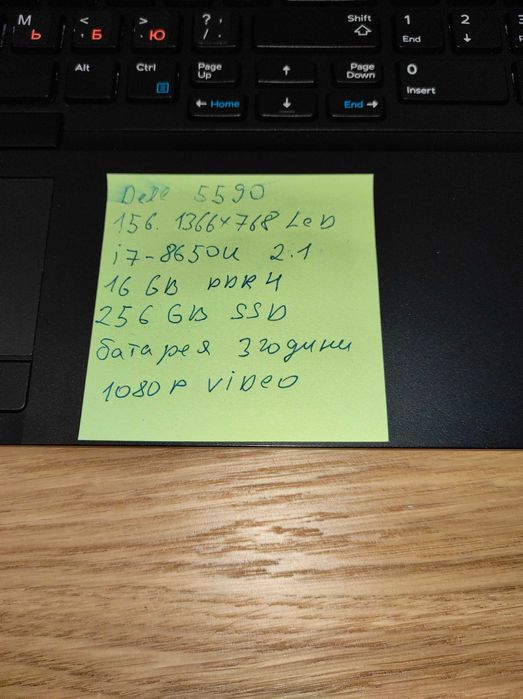 M Ь < , Б > . Ю ? / . Shift 1 End 2
Alt Ctrl Page Up Page Down 0 Insert
Home End
Dell 5590
156. 1366×768 LED
i7-8650U 2.1
16 GB DDR4
256 GB SSD
батарея 3 години
1080p video